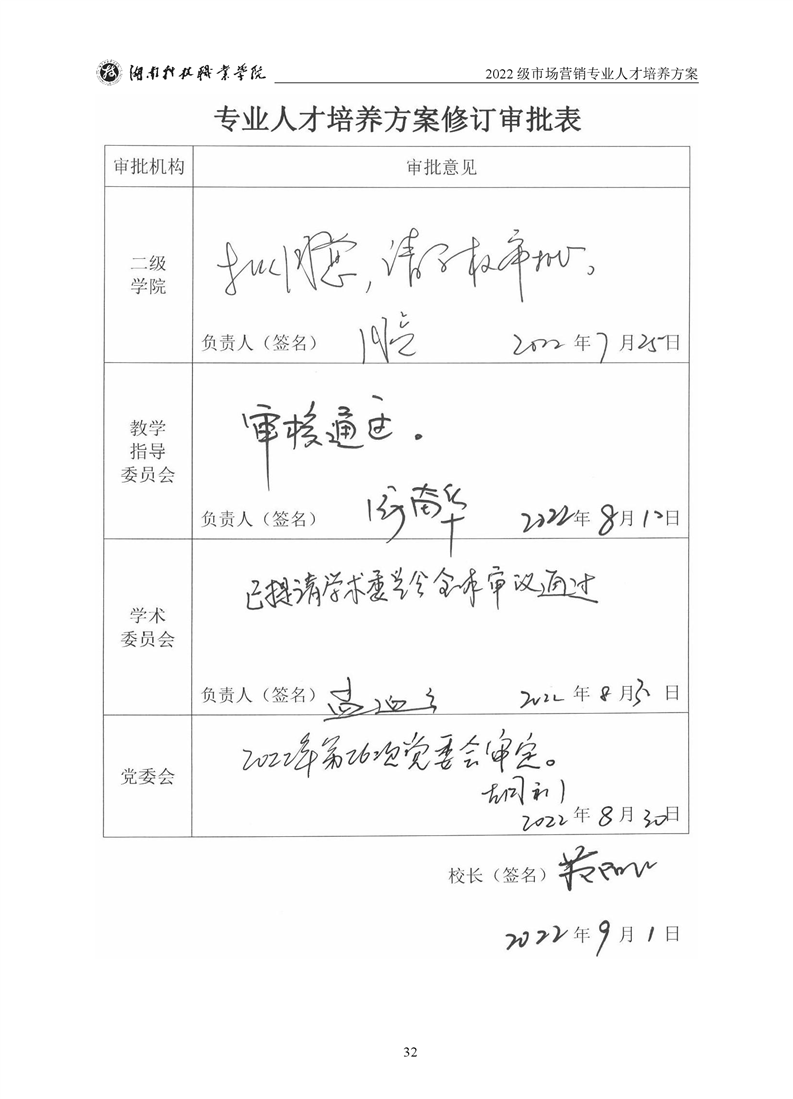 湖南科技职业学院
2022 级市场营销专业人才培养方案
专业人才培养方案修订审批表
审批机构
审批意见
二级
学院
拟同意,请学校审批。
负责人(签名)
2022 年 7 月 25 日
教学
指导
委员会
审核通过。
负责人(签名)
2022 年 8 月 10 日
学术
委员会
已提请学术委员会全体审议通过
负责人(签名)
2022 年 8 月 日
党委会
2022年第26次党委会审定。
2022 年 8 月 30 日
校长(签名)
2022 年 9 月 1 日
32